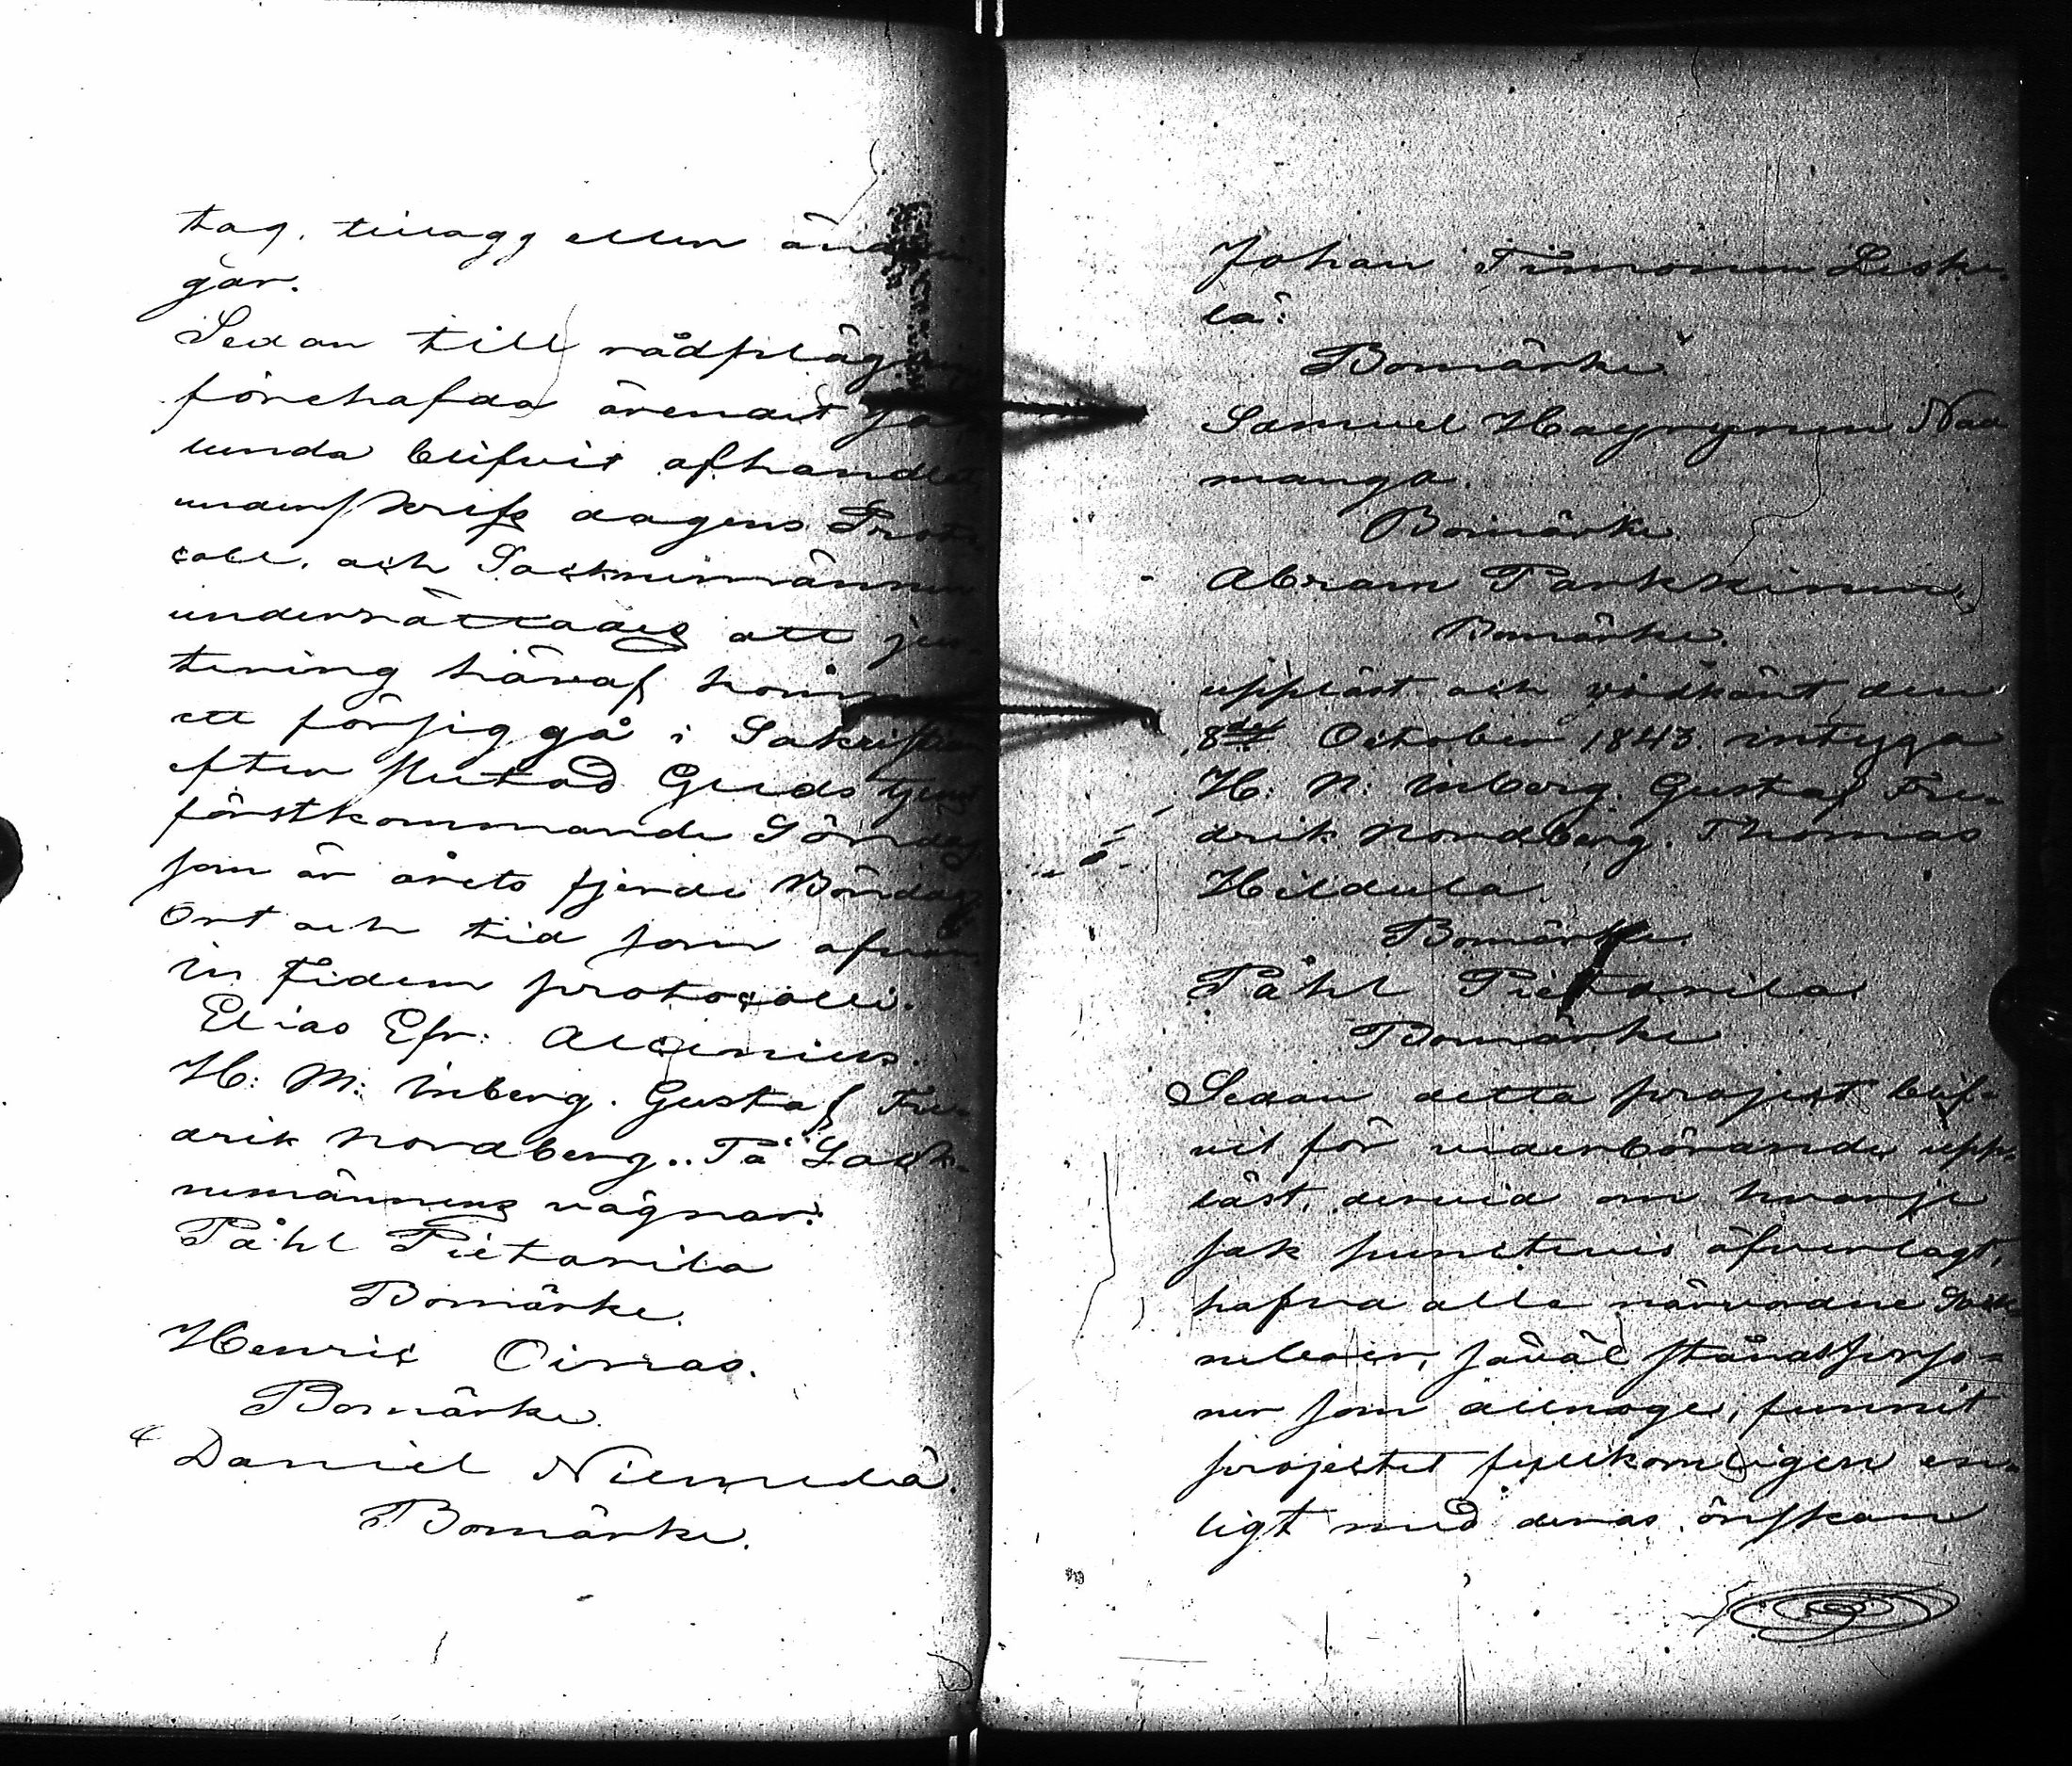 tag, tillägg eller ändrin
gar.
Sedan till rådplägni
förehafda ärendet så
lunda blifvit afhandlat
underskrifs dagens Proto
coll, och Socknemännen
underrättades att jus
tering häraf kommer
att försiggå i Sakristian
efter slutad Gudstjenst
förstkommande Söndag
som är årets fjerde Böndag
Ort och tid som ofvan
in fidem protocolli.
Elias Efr: Alcenius.
H: M: Inberg. Gustaf Fre-
drik Nordberg.. På Sock-
nemännens vägnar:
Påhl Pietarila
Bomärke.
Henric Oinas.
Bomärke.
Daniel Niemelä.
Bomärke.
Johan Timonen Leske-
lä:
Bomärke
Samuel Hayrynen Naa
manga.
Bomärke.
Abram Parkkinen,
Bomärke.
uppläst och vidkänt den
8de October 1843. intyga
H: N: Inberg. Gustaf Fre-
drik Nordberg. Thomas
Hildula.
Bomärke.
Påhl Pietarila
Bomärke
Sedan detta project blif-
vit för vederbörande upp-
läst, dervid om hvarje
sak punctvis öfverlagt,
hafva alla närvarane Sock
neboer, såväl ståndsperso-
ner som allmoge, funnit
projectet fullkomligen en-
ligt med deras önskan